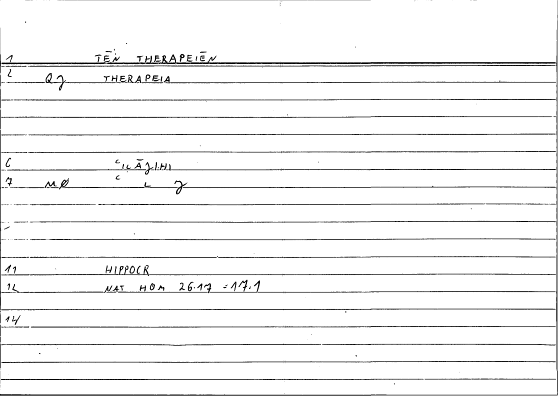 1 TĒN THERAPEIĒN
2 THERAPEIA
6
7 MØ
11 HIPPOCR
12 NAT HOM 26.17 =17.1
14